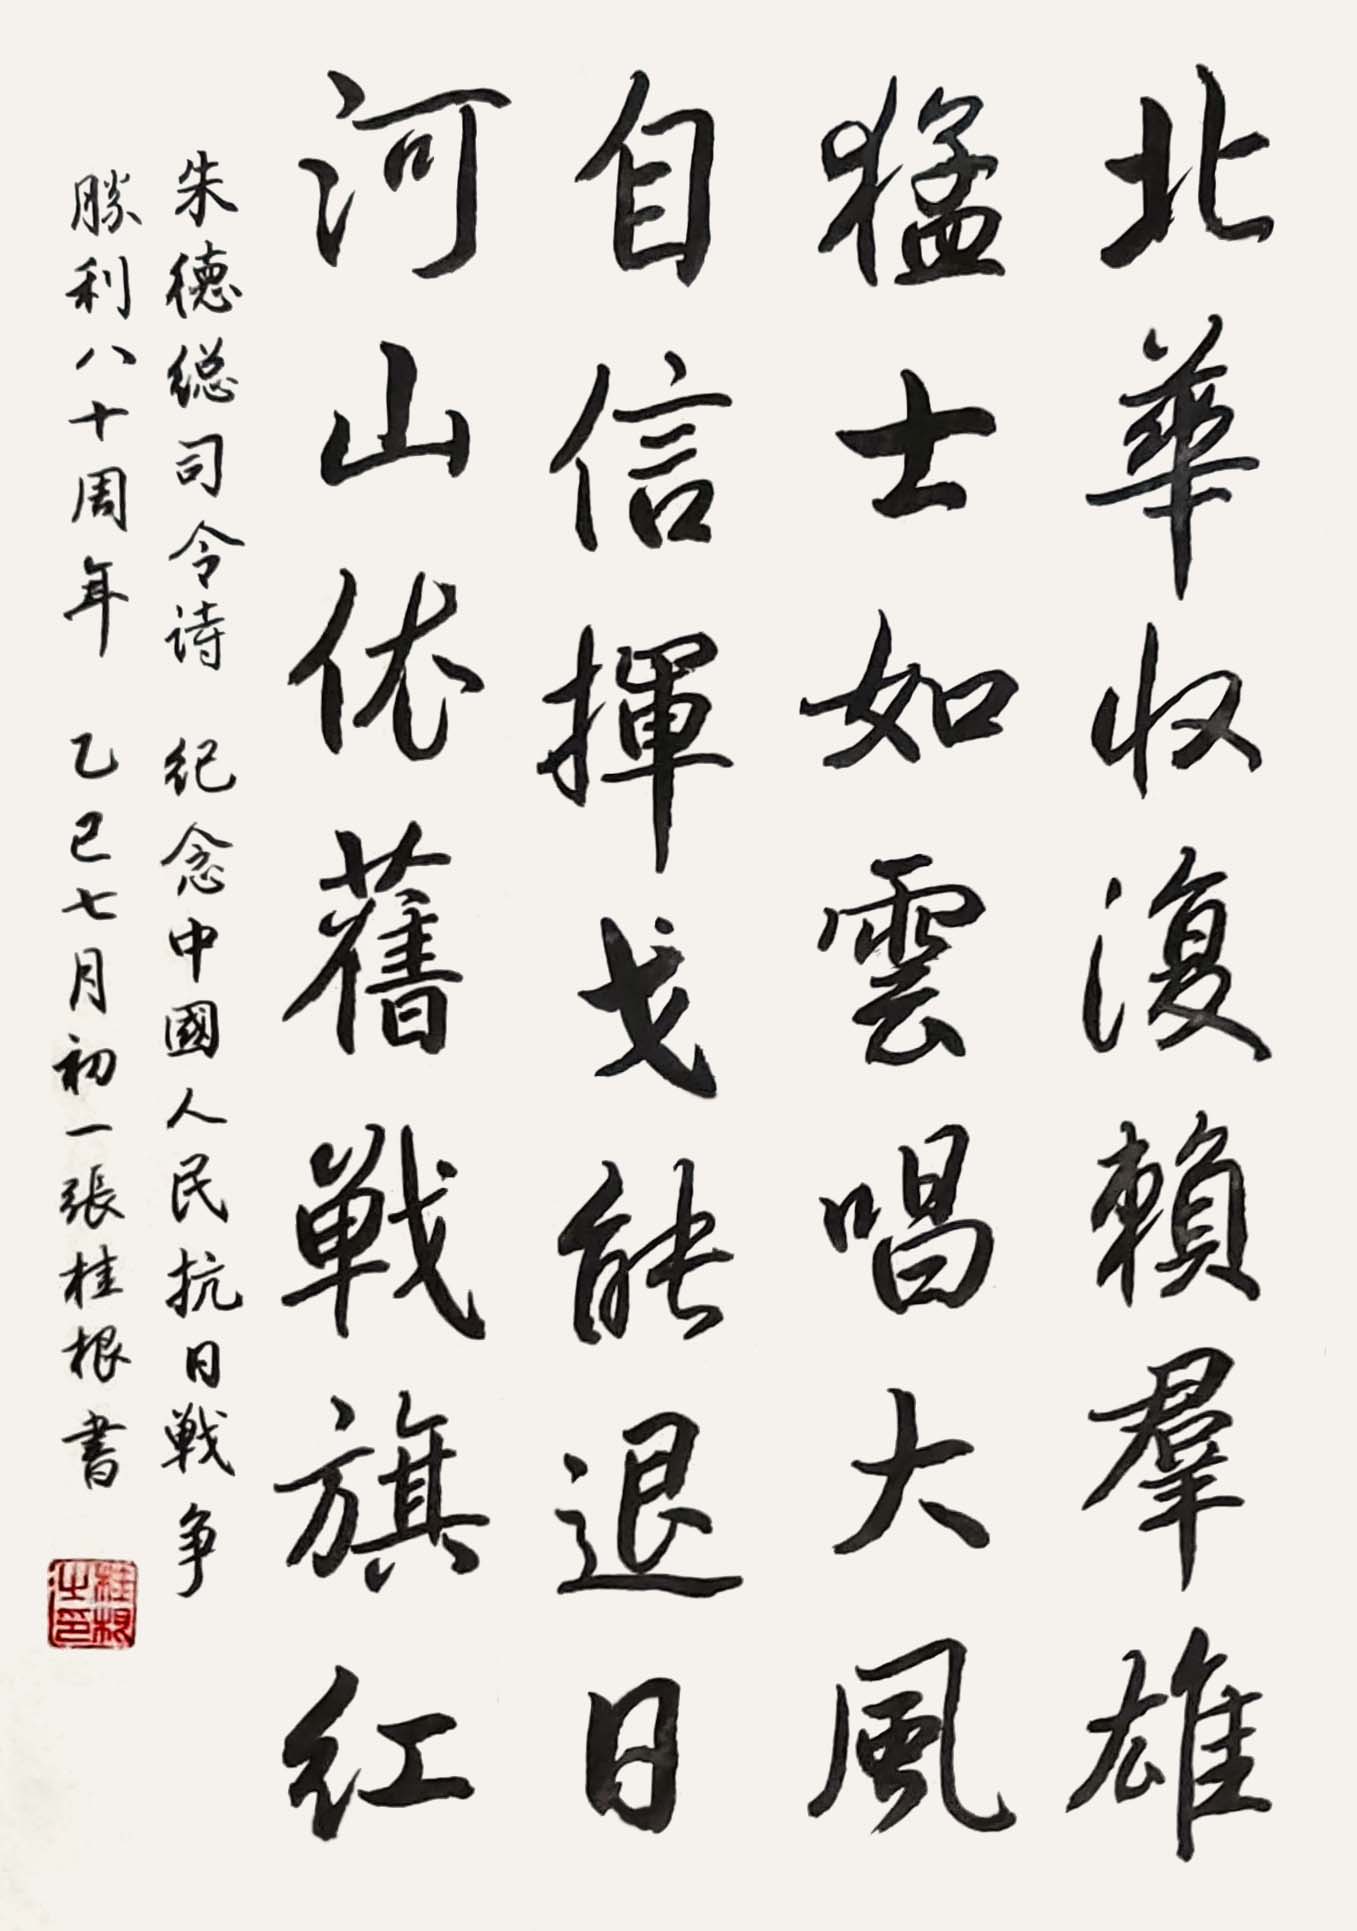 北華收復賴羣雄
猛士如雲唱大風
自信揮戈能退日
河山依舊戦旗红
朱德総司令诗 纪念中國人民抗日戦争
勝利八十周年 乙巳七月初一張桂根書
桂根之印